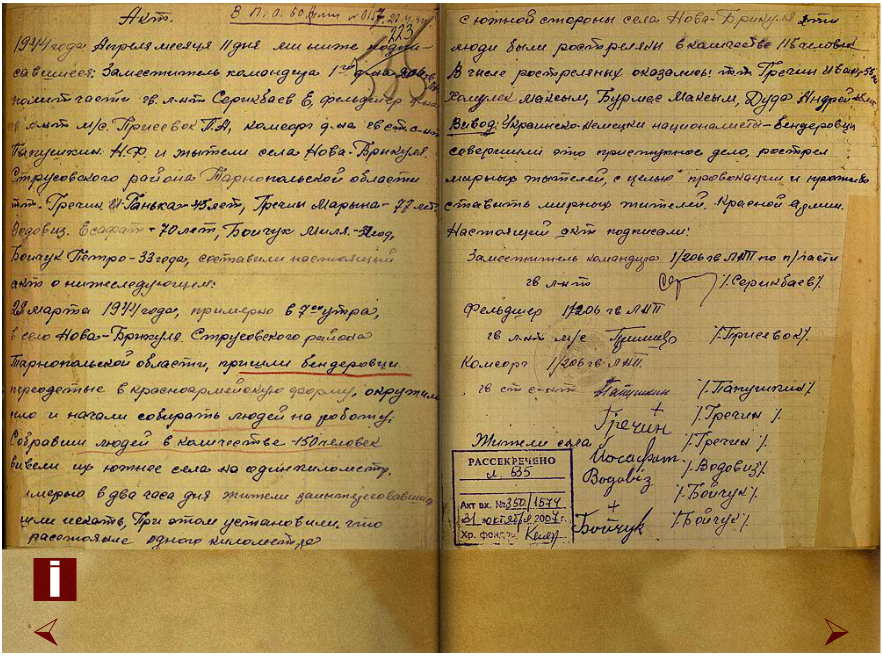 Акт.
В П.О. 60 армии №0157 22.4.44
223
1944 года Апреля месяця 11 дня мы ниже подпи-
савшиеся: Заместитель командира 1го д-на 206 гв.
полит части гв. л-нт Серикбаев Е, фельдшер д-на
гв л-нт м/с. Присевок П.А, комсорг д-на гв ст с-нт
Папушкин Н.Ф. и жытели села Нова-Брикуля.
Струсовского района Тарнопольской области
т.т. Гречин И Ганька-45 лет, Гречин Марына-77 лет.
Водовиз. Есафат-70 лет, Бойчук Миля-32 год,
Бойчук Петро-33 года, составили настоящий
акт о нижеследующем:
22 марта 1944 года, примерно в 7 00 утра,
в село Нова-Брикуля Струсовского района
Тарнопольской области, пришли бендеровци
переодетые в красноармейскую форму, окружили
село и начали собирать людей на работу.
Собравши людей в количестве 150 человек
вывели их южнее села на один километр.
Примерно в два часа дня жители заинтересовавшись
шли искать, При этом установили, что
расстояние одного километра
с южной стороны села Нова-Брикуля эти
люди были ростреляны в количестве 115 человек
В числе ростреляных оказались: т.т. Гречин Иван
Максым, Бурмас Максым, Дуда Андрей
Вывод: Украинско-немецки националисты-бендеровци
совершили это приступное дело, рострел
мирных жителей, с целью провокации и противо
ставить мирных жителей. Красной армии.
Настоящий акт подписали:
Заместитель командира 1/206 гв ЛАП по п/части
гв л-нт /.Серикбаев/.
Фельдшер 1/206 гв ЛАП
гв л-нт м/с /.Присевок/.
Комсорг 1/206 гв ЛАП.
гв ст с-нт Папушкин /.Папушкин/.
+
Гречин /.Гречин/.
Жители села /.Гречин/.
Йосафат
Водовіз /.Водовиз/.
/.Бойчук/.
+
Бойчук /.Бойчук/.
РАССЕКРЕЧЕНО
л. 535
Акт вх. №350/1574
31 октября 2007 г.
Хр. фонд